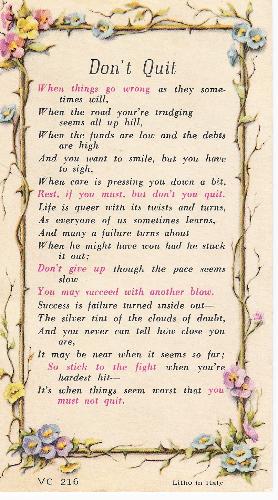 Don't Quit
When things go wrong as they some-
times will,
When the road you're trudging
seems all up hill,
When the funds are low and the debts
are high
And you want to smile, but you have
to sigh,
When care is pressing you down a bit,
Rest, if you must, but don't you quit.
Life is queer with its twists and turns,
As everyone of us sometimes learns,
And many a failure turns about
When he might have won had he stuck
it out;
Don't give up though the pace seems
slow
You may succeed with another blow.
Success is failure turned inside out—
The silver tint of the clouds of doubt,
And you never can tell how close you
are,
It may be near when it seems so far;
So stick to the fight when you're
hardest hit—
It's when things seem worst that you
must not quit.
VC 216 Litho in Italy